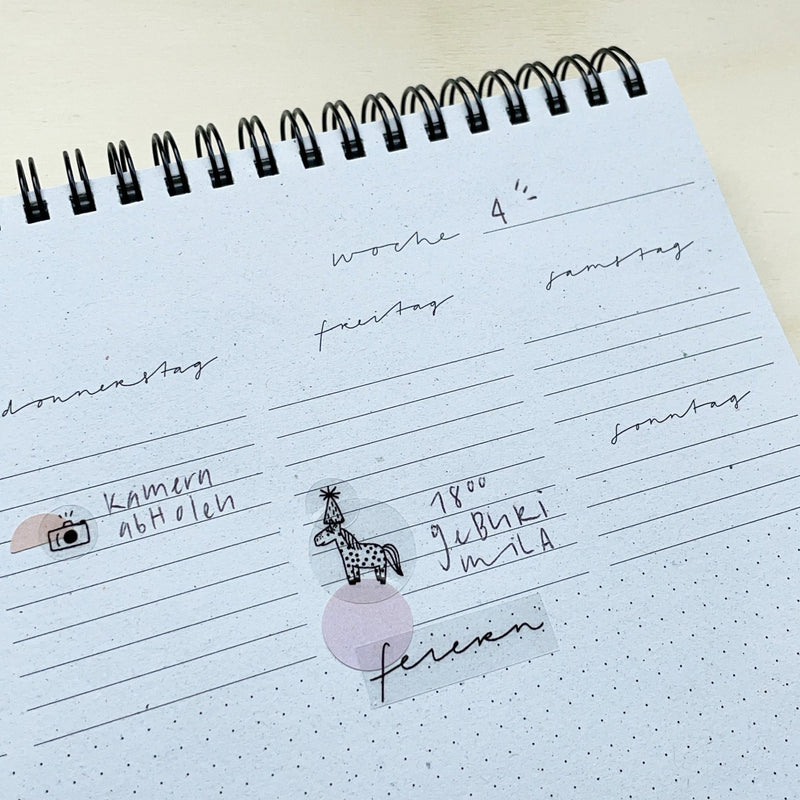 woche 4
donnerstag
freitag
samstag
sonntag
Kamera
abHolen
18⁰⁰
geBURi
miLA
feiern